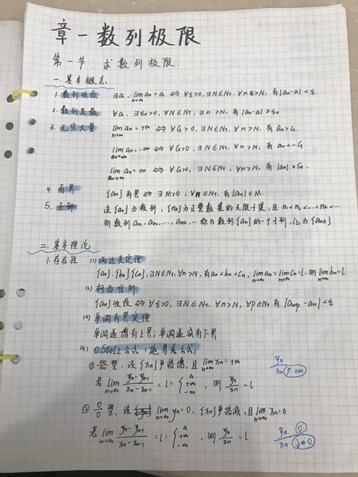 章一数列极限
第一节 求数列极限
一.基本概念
1.数列收敛 ∃a, lim an = a ⇔ ∀ε>0, ∃N∈N+, ∀n>N, 有|an-a|<ε.
n→∞
2.数列发散 ∀a, ∃ε0>0, ∀N∈N+, ∃n>N, 有|an-a|≥ε0
3.无穷大量 lim an = +∞ ⇔ ∀G>0, ∃N∈N+, ∀n>N, 有 an>G.
n→∞
lim an = -∞ ⇔ ∀G>0, ∃N∈N+, ∀n>N, 有 an<-G
lim an = ∞ ⇔ ∀G>0, ∃N∈N+, ∀n>N, 有 |an|>G.
4.有界 {an}有界 ⇔ ∃M>0, ∀n∈N+, 有|an|≤M.
5.子列 设{an}为数列, {nk}为正整数集的无限子集, 且 n1<n2<…<nk<…
则数列 an1, an2, …, ank, … 称为数列{an}的一个子列, 记为{ank}
二.基本理论
1.存在性 (1)两边夹定理
{an},{bn},{cn}, ∃N∈N+, ∀n>N, 有an<bn<cn, lim an = lim cn = l, 则 lim bn = l
(2)柯西准则
{an}收敛 ⇔ ∀ε>0, ∃N∈N+, ∀n>N, ∀p∈N+ 有|an+p-an|<ε
(3)单调有界定理
单调递增有上界; 单调递减有下界
(4) O.Stolz公式
① 型. 设{xn}严格增, 且 lim xn = +∞
yn
xn (↑+∞)
若 lim yn-yn-1 / xn-xn-1 = l = { a +∞ -∞ , 则 yn/xn = l
② 0/0 型. 设 lim yn = 0, {xn}严格减, 且 lim xn = 0
若 lim yn-yn-1 / xn-xn-1 = l = { a +∞ -∞ 则 yn/xn = l
yn (0)
xn (↓0)